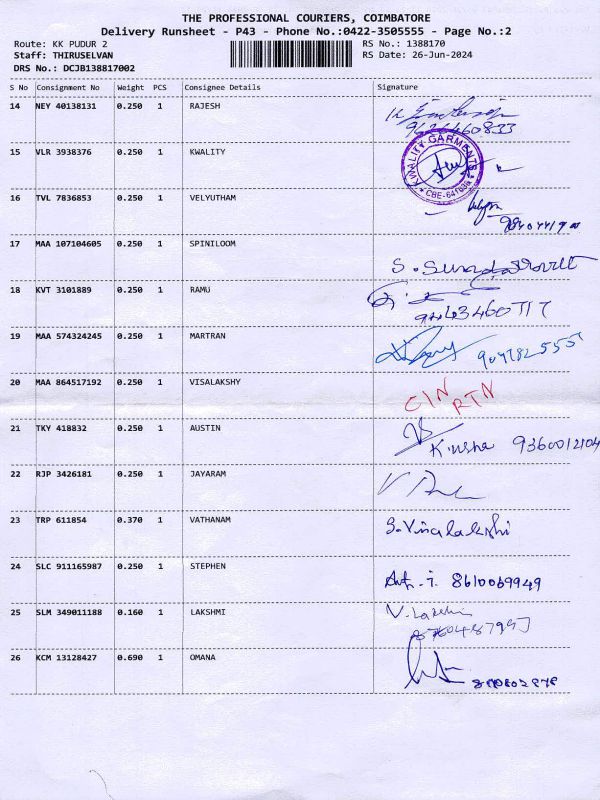 THE PROFESSIONAL COURIERS, COIMBATORE
Delivery Runsheet - P43 - Phone No.:0422-3505555 - Page No.:2
Route: KK PUDUR 2 RS No.: 1388170
Staff: THIRUSELVAN RS Date: 26-Jun-2024
DRS No.: DCJB138817002
S No Consignment No Weight PCS Consignee Details Signature
14 NEY 40138131 0.250 1 RAJESH
15 VLR 3938376 0.250 1 KWALITY KWALITY GARMENTS
16 TVL 7836853 0.250 1 VELYUTHAM
17 MAA 107104605 0.250 1 SPINILOOM
18 KVT 3101889 0.250 1 RAMU
19 MAA 574324245 0.250 1 MARTRAN
20 MAA 864517192 0.250 1 VISALAKSHY RTN
21 TKY 418832 0.250 1 AUSTIN 9360012104
22 RJP 3426181 0.250 1 JAYARAM
23 TRP 611854 0.370 1 VATHANAM
24 SLC 911165987 0.250 1 STEPHEN 8610069949
25 SLM 349011188 0.160 1 LAKSHMI
26 KCM 13128427 0.690 1 OMANA